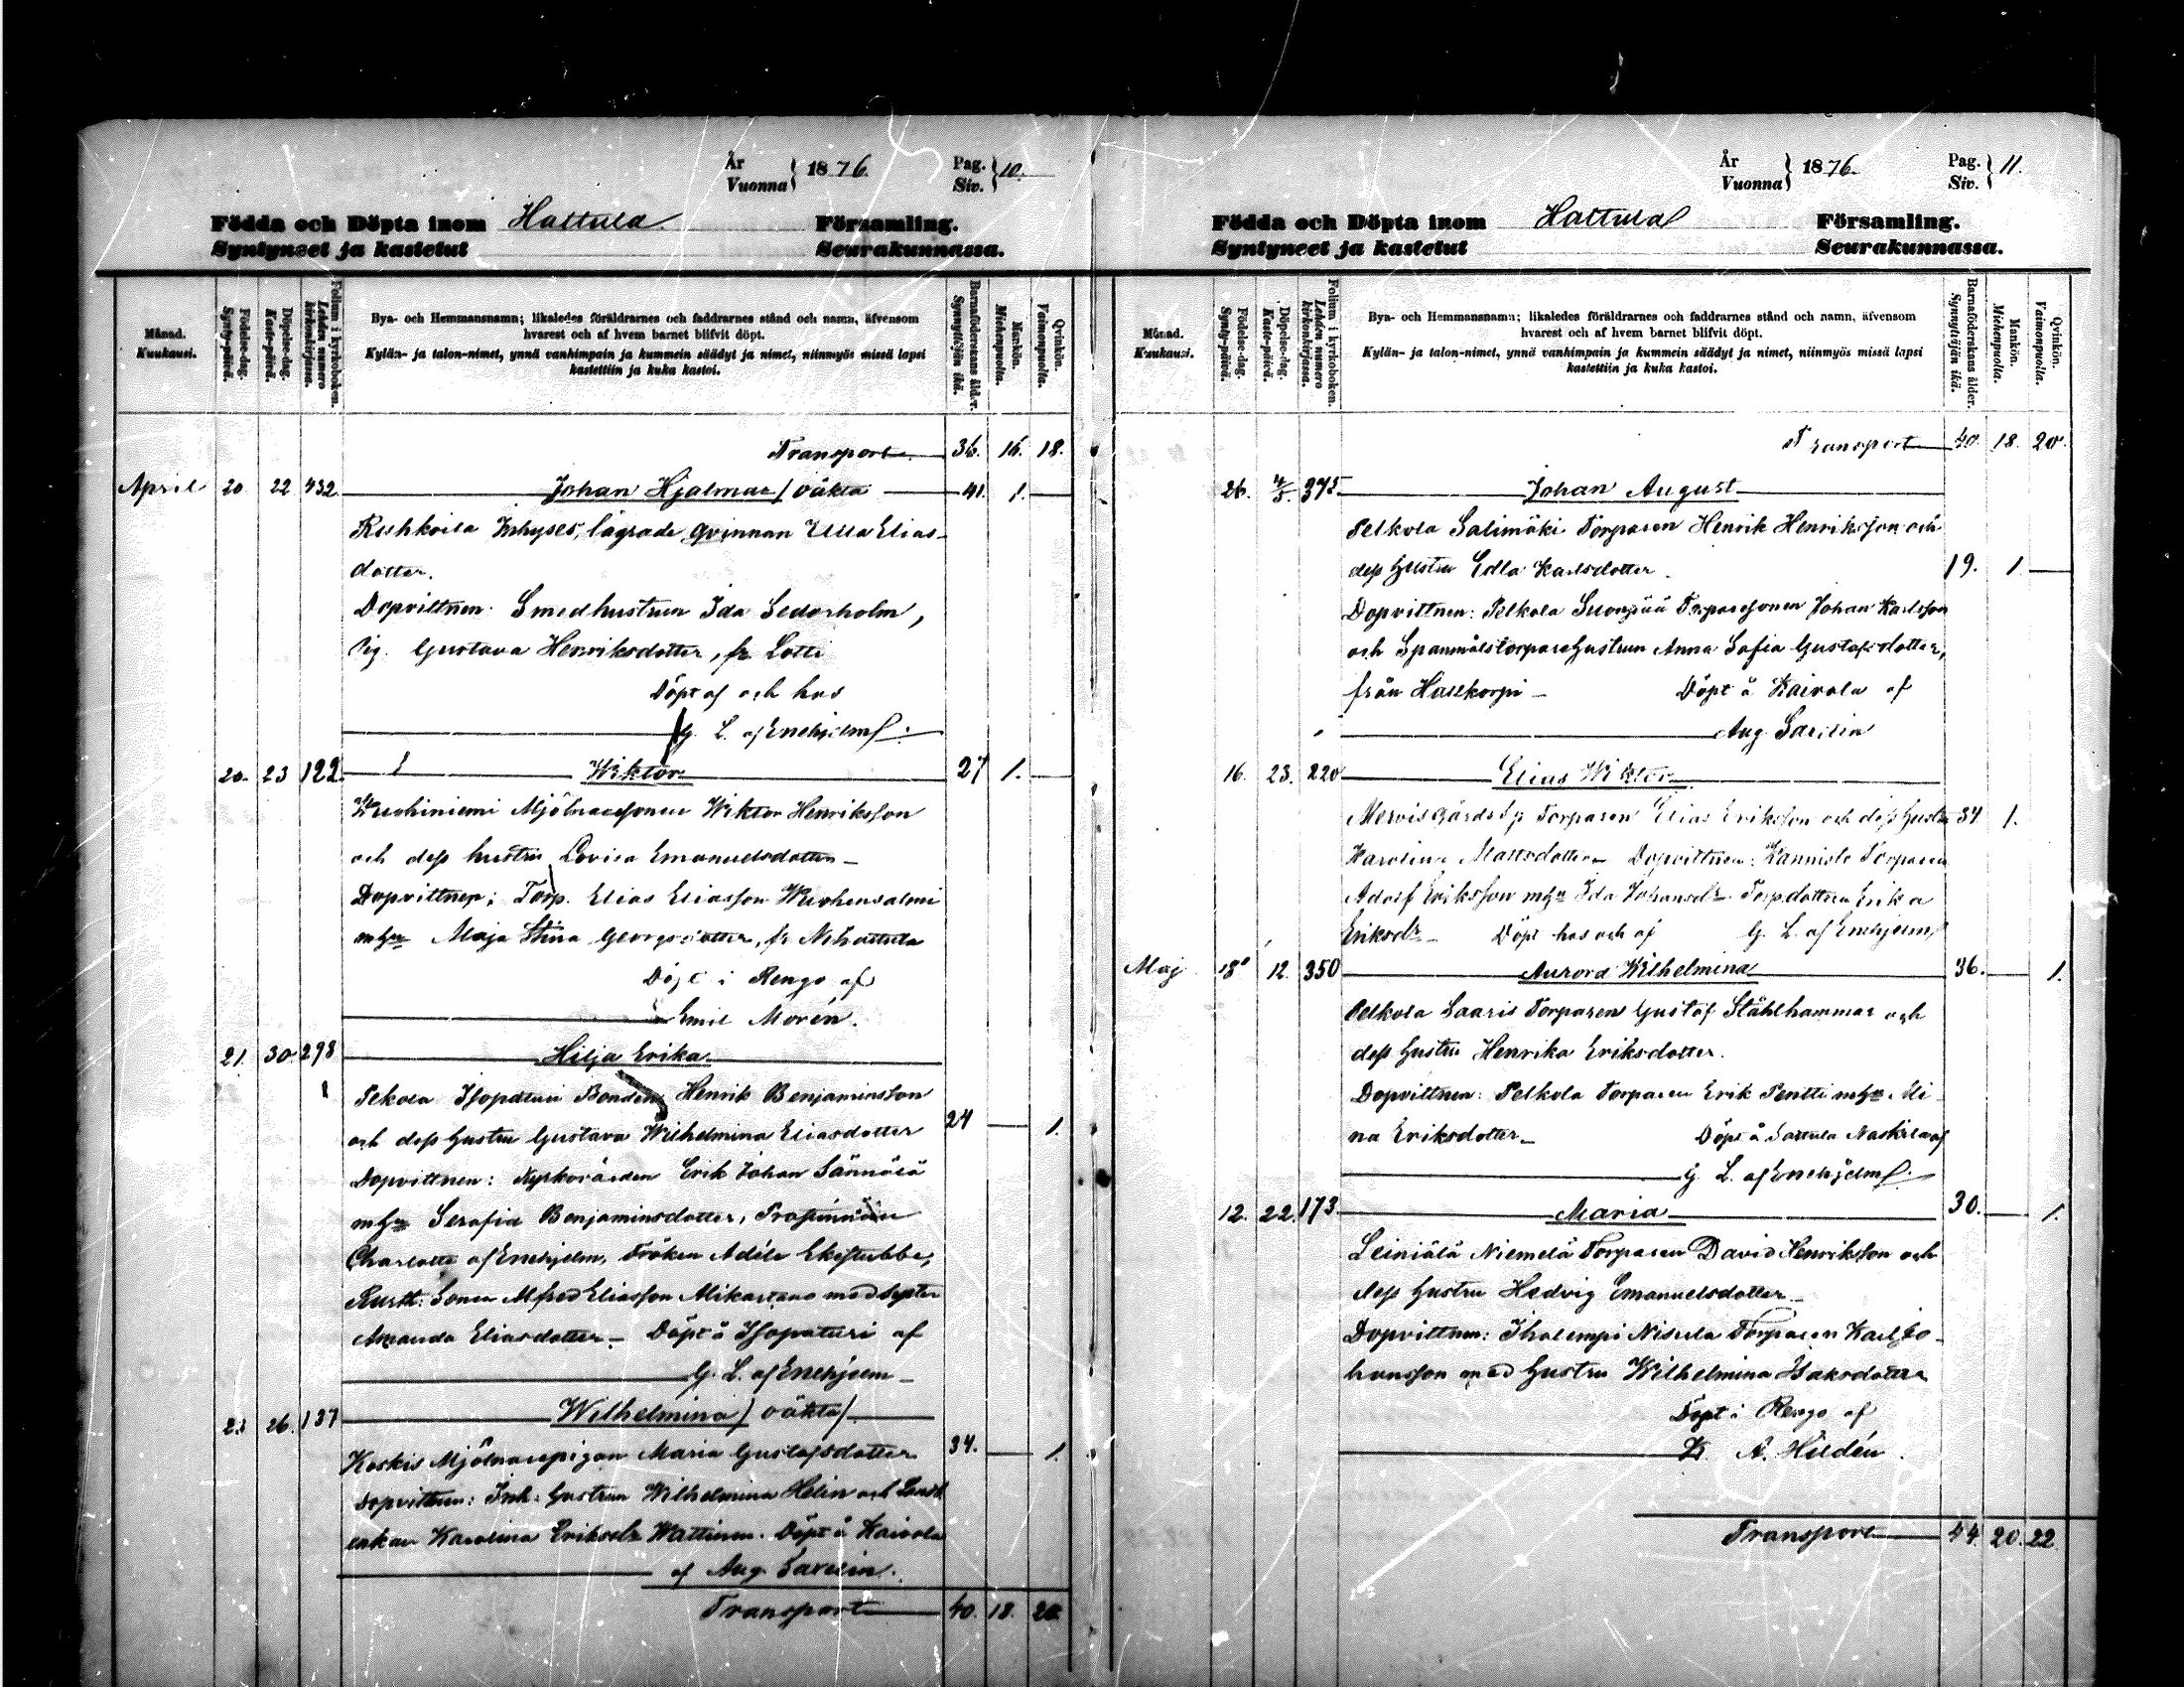 År
Vuonna } 1876. Pag.
Siv. } 10.
Födda och Döpta inom Hattula Församling.
Syntyneet ja kastetut Seurakunnassa.
Månad.
Kuukausi.
Födelse-dag.
Synty-päivä.
Döpelse-dag.
Kaste-päivä.
Folium i kyrkoboken.
Lehden numero kirkonkirjassa.
Bya- och Hemmansnamn; likaledes föräldrarnes och faddrarnes stånd och namn, äfvensom
hvarest och af hvem barnet blifvit döpt.
Kylän- ja talon-nimet, ynnä vanhimpain ja kummein säädyt ja nimet, niinmyös missä lapsi
kastettiin ja kuka kastoi.
Barnaföderskans ålder.
Synnyttäjän ikä.
Mankön.
Miehenpuolta.
Qvinkön.
Vaimonpuolta.
Transport 36. 16. 18.
April 20 22 432 Johan Hjalmar / oäkta 41. 1.
Inhyses, lägrade qvinnan Ulla Elias-
dotter.
Dopvittnen: Smedhustrun Ida Sederholm,
Pig. Gustava Henriksdotter, fr Lotti
Döpt af och hos
G. L. af Enehjelm.
20. 23 122. Wiktor 27 1.
Mjölnaresonen Wiktor Henriksson
och dess hustru Lovisa Emanuelsdotter
Dopvittnen; Torp. Elias Eliasson
mhu Maja Stina Georgsdotter, fr
Döpt i Rengo af
Emil Morén.
21. 30 298 Hilja Erika
Pekola Isopaturi Bonden Henrik Benjaminsson
och dess hustru Gustava Wilhelmina Eliasdotter 24 1.
Dopvittnen: Kyrkovärden Erik Johan Sännälä
mhu Serafia Benjaminsdotter, Prostinnan
Charlotte af Enehjelm, Fröken Adéle Ekestubbe,
Rustt. Sonen Alfred Eliasson Alikartano med syster
Amanda Eliasdotter. Döpt å Isopaturi af
G. L. af Enehjelm
23 26. 137 Wilhelmina / oäkta /
Koskis Mjölnarepigan Maria Gustafsdotter 34. 1.
Dopvittnen: Inh. hustrun Wilhelmina Helin och
enkan Karolina Eriksdr Wattinen. Döpt å Kaivola
af Aug. Sarelin.
Transport 40. 18. 20
År
Vuonna } 1876. Pag.
Siv. } 11.
Födda och Döpta inom Hattula Församling.
Syntyneet ja kastetut Seurakunnassa.
Månad.
Kuukausi.
Födelse-dag.
Synty-päivä.
Döpelse-dag.
Kaste-päivä.
Folium i kyrkoboken.
Lehden numero kirkonkirjassa.
Bya- och Hemmansnamn; likaledes föräldrarnes och faddrarnes stånd och namn, äfvensom
hvarest och af hvem barnet blifvit döpt.
Kylän- ja talon-nimet, ynnä vanhimpain ja kummein säädyt ja nimet, niinmyös missä lapsi
kastettiin ja kuka kastoi.
Barnaföderskans ålder.
Synnyttäjän ikä.
Mankön.
Miehenpuolta.
Qvinkön.
Vaimonpuolta.
Transport 40. 18. 20.
26. 4/5. 375 Johan August
Pelkola Salimäki Torparen Henrik Henriksson och
dess hustru Edla Karlsdotter. 19. 1
Dopvittnen: Pelkola Suonpää Torparesonen Johan Karlsson
och Spanmålstorparehustrun Anna Sofia Gustafsdotter,
från Hattkorpi Döpt å Kaivola af
Aug. Sarelin
16. 23. 220 Elias Wiktor
Torparen Elias Eriksson och dess hustru 34 1.
Karolina Mattsdotter Dopvittnen: Kannisto Torparen
Adolf Eriksson mhu Ida Johansdr. Torpdottren Erika
Eriksdr Döpt hos och af G. L. af Enehjelm
Maj 12. 350 Aurora Wilhelmina 36. 1.
Pelkola Saaris Torparen Gustaf Ståhlhammar och
dess hustru Henrika Eriksdotter.
Dopvittnen: Pelkola Torparen Erik Pentti mhu Mi-
na Eriksdotter Döpt å Sattula Naskila af
G. L. af Enehjelm.
12. 22. 173 Maria 30. 1.
Leiniälä Niemelä Torparen David Henriksson och
dess hustru Hedvig Emanuelsdotter
Dopvittnen: Ihalempi Nisula Torparen Karl Jo-
hansson med hustru Wilhelmina Isaksdotter
Döpt i Rengo af
K. A. Hildén.
Transport 44. 20. 22